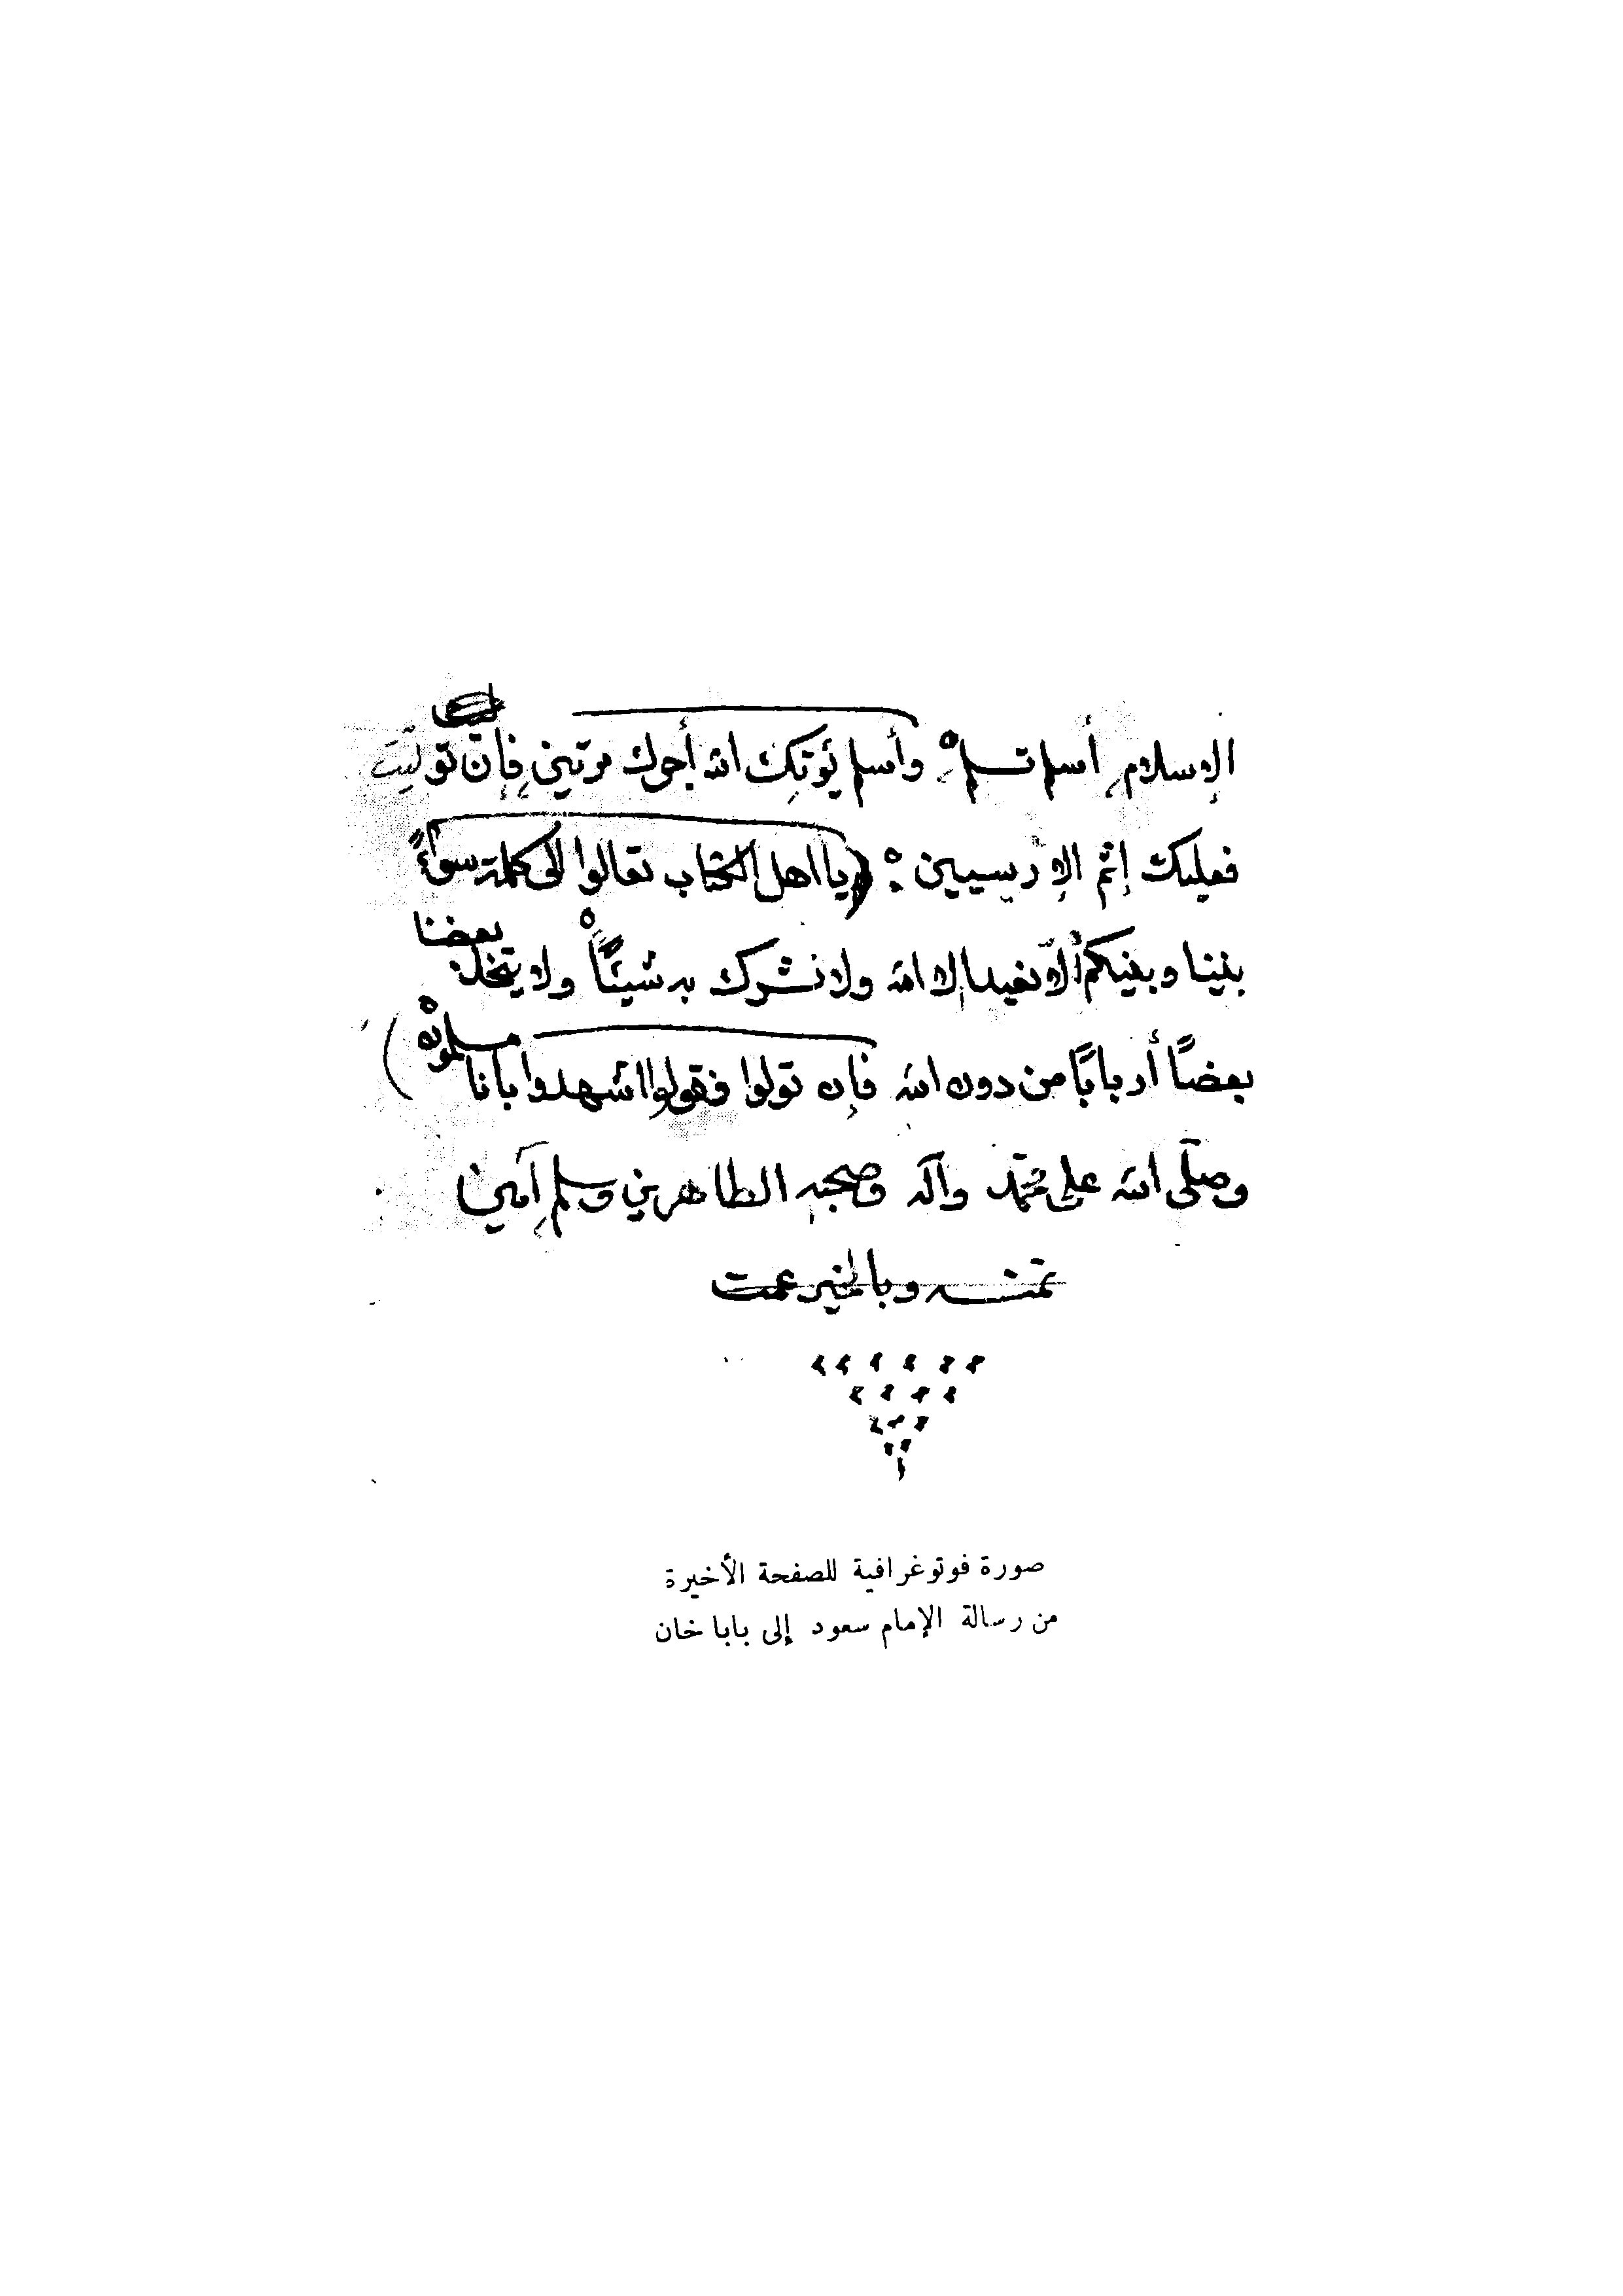 الإسلام أسلم تسلم وأسلم يؤتك الله أجرك مرتين فإن توليت
فعليك إثم الإريسيين : (يا اهل الكتاب تعالوا الى كلمة سواءً
بيننا وبينكم ألا نعبد إلا الله ولا نشرك به شيئًا ولا يتخذ بعضنا
بعضًا أربابًا من دون الله فإن تولوا فقولوا اشهدوا بأنا مسلمون)
وصلّى الله على محمّد وآله وصحبه الطاهرين وسلم آمين
تمت وبالخير عمت
صورة فوتوغرافية للصفحة الأخيرة
من رسالة الإمام سعود إلى بابا خان